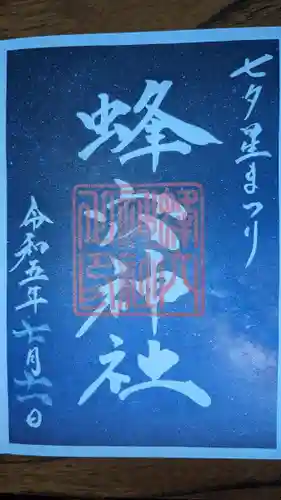 七夕星まつり
蜂穴神社
令和五年七月十一日